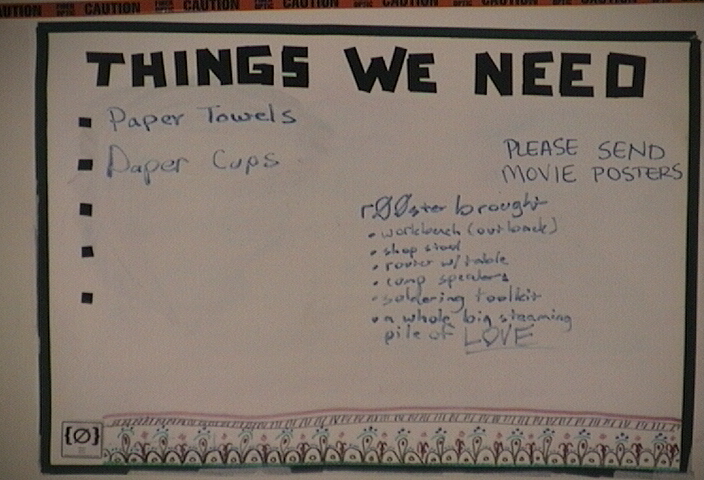 CAUTION CAUTION CAUTION CAUTION CAUTION
THINGS WE NEED
Paper Towels
Paper Cups
PLEASE SEND
MOVIE POSTERS
rØØster brought
• workbench (out back)
• shop stool
• router w/table
• comp speakers
• soldering toolkit
• a whole big steaming
pile of LOVE
{Ø}